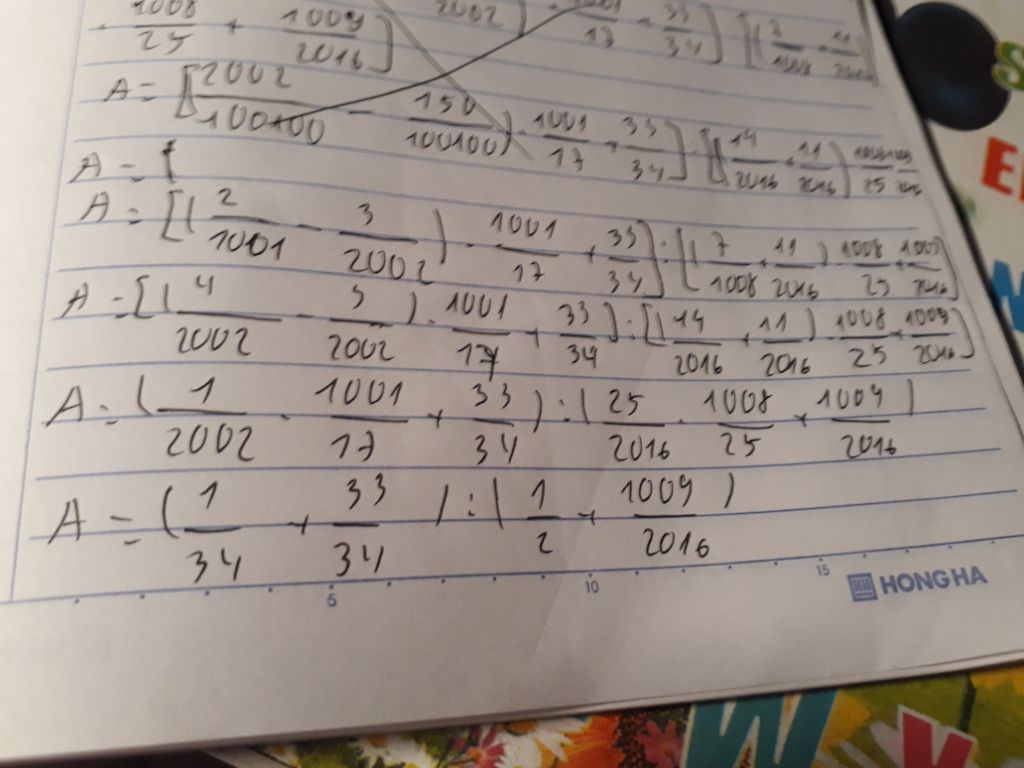 1008/25 + 1009/2016] 2002) · 1001/17 + 33/34] : [(7/1008 + 11/2016)
A = [2002/100100 - 150/100100) · 1001/17 + 33/34] : [(14/2016 + 11/2016) 1008/25
A = [
A = [(2/1001 - 3/2002) · 1001/17 + 33/34] : [(7/1008 + 11/2016) 1008/25 + 1009/2016]
A = [(4/2002 - 3/2002) · 1001/17 + 33/34] : [(14/2016 + 11/2016) · 1008/25 + 1009/2016]
A = (1/2002 · 1001/17 + 33/34) : (25/2016 · 1008/25 + 1009/2016)
A = (1/34 + 33/34) : (1/2 + 1009/2016)
5 10 15
HONG HA